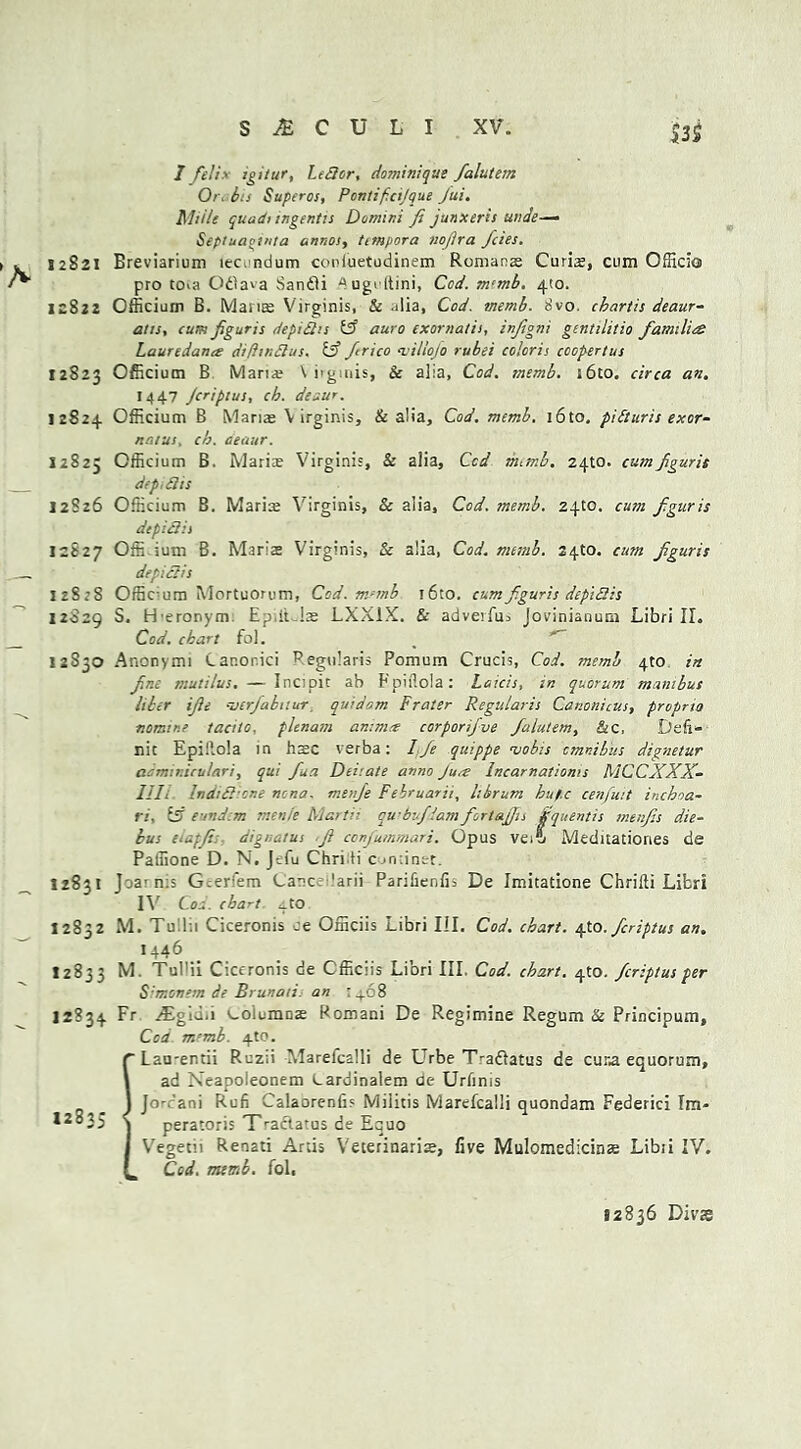 SÆCULI XV.
I felix igitur, Lector, dominique ſalutem
Orabis Superos, Pontificiſque ſui.
Mille quadringentis Domini ſi junxeris unde—
Septuaginta annos, tempora noſtra ſcies.
12821 Breviarium ſecundum conſuetudinem Romanæ Curiæ, cum Officio
pro tota Octava Sancti Auguſtini, Cod. memb. 4to.
12822 Officium B. Mariæ Virginis, & alia, Cod. memb. 8vo. chartis deaur-
atis, cum figuris depictis & auro exornatis, inſigni gentilitio familiæ
Lauredanæ diſtinctus. & ſerico villoſo rubei coloris coopertus
12823 Officium B. Mariæ Virginis, & alia, Cod. memb. 16to. circa an.
1447 ſcriptus, ch. deaur.
12824 Officium B Mariæ Virginis, & alia, Cod. memb. 16to. picturis exor-
natus, ch. deaur.
12825 Officium B. Mariæ Virginis, & alia, Cod memb. 24to. cum figuris
depictis
12826 Officium B. Mariæ Virginis, & alia, Cod. memb. 24to. cum figuris
depictis
12827 Officium B. Mariæ Virginis, & alia, Cod. memb. 24to. cum figuris
depictis
12828 Officium Mortuorum, Cod. memb 16to. cum figuris depictis
12829 S. Hieronymi Epiſtolæ LXXIX. & adverſus Jovinianum Libri II.
Cod. chart fol.
12830 Anonymi Canonici Regularis Pomum Crucis, Cod. memb 4to. in
fine mutilus. — Incipit ab Epiſtola: Laicis, in quorum manibus
liber iſte verſabitur, quidam Frater Regularis Canonicus, proprio
nomine tacito, plenam animæ corporiſve ſalutem, &c, Defi-
nit Epiſtola in hæc verba: Ipſe quippe vobis omnibus dignetur
adminiculari, qui ſua Deitate anno ſuæ Incarnationis MCCXXX-
IIII. Indictione nona. menſe Februarii, librum hunc cenſuit inchoa-
ri, & eundem menſe Martii quibuſdam fortaſſis ſequentis menſis die-
bus elapſis, dignatus eſt conſummari. Opus vero Meditationes de
Paſſione D. N. Jeſu Chriſti continet.
12831 Joannis Gerſem Cancellarii Pariſienſis De Imitatione Chriſti Libri
IV Cod. chart. 4to
12832 M. Tullii Ciceronis de Officiis Libri III. Cod. chart. 4to. ſcriptus an.
1446
12833 M. Tullii Ciceronis de Officiis Libri III. Cod. chart. 4to. ſcriptus per
Simonem de Brunatis an 1468
12834 Fr. Ægidii Columnæ Romani De Regimine Regum & Principum,
Cod. memb. 4to.
Laurentii Ruzii Mareſcalli de Urbe Tractatus de cura equorum,
ad Neapoleonem Cardinalem de Urſinis
12835 Jordani Rufi Calabrenſis Militis Mareſcalli quondam Federici Im-
peratoris Tractatus de Equo
Vegetii Renati Artis Veterinariæ, ſive Mulomedicinæ Libri IV.
Cod. memb. fol.
12836 Divæ